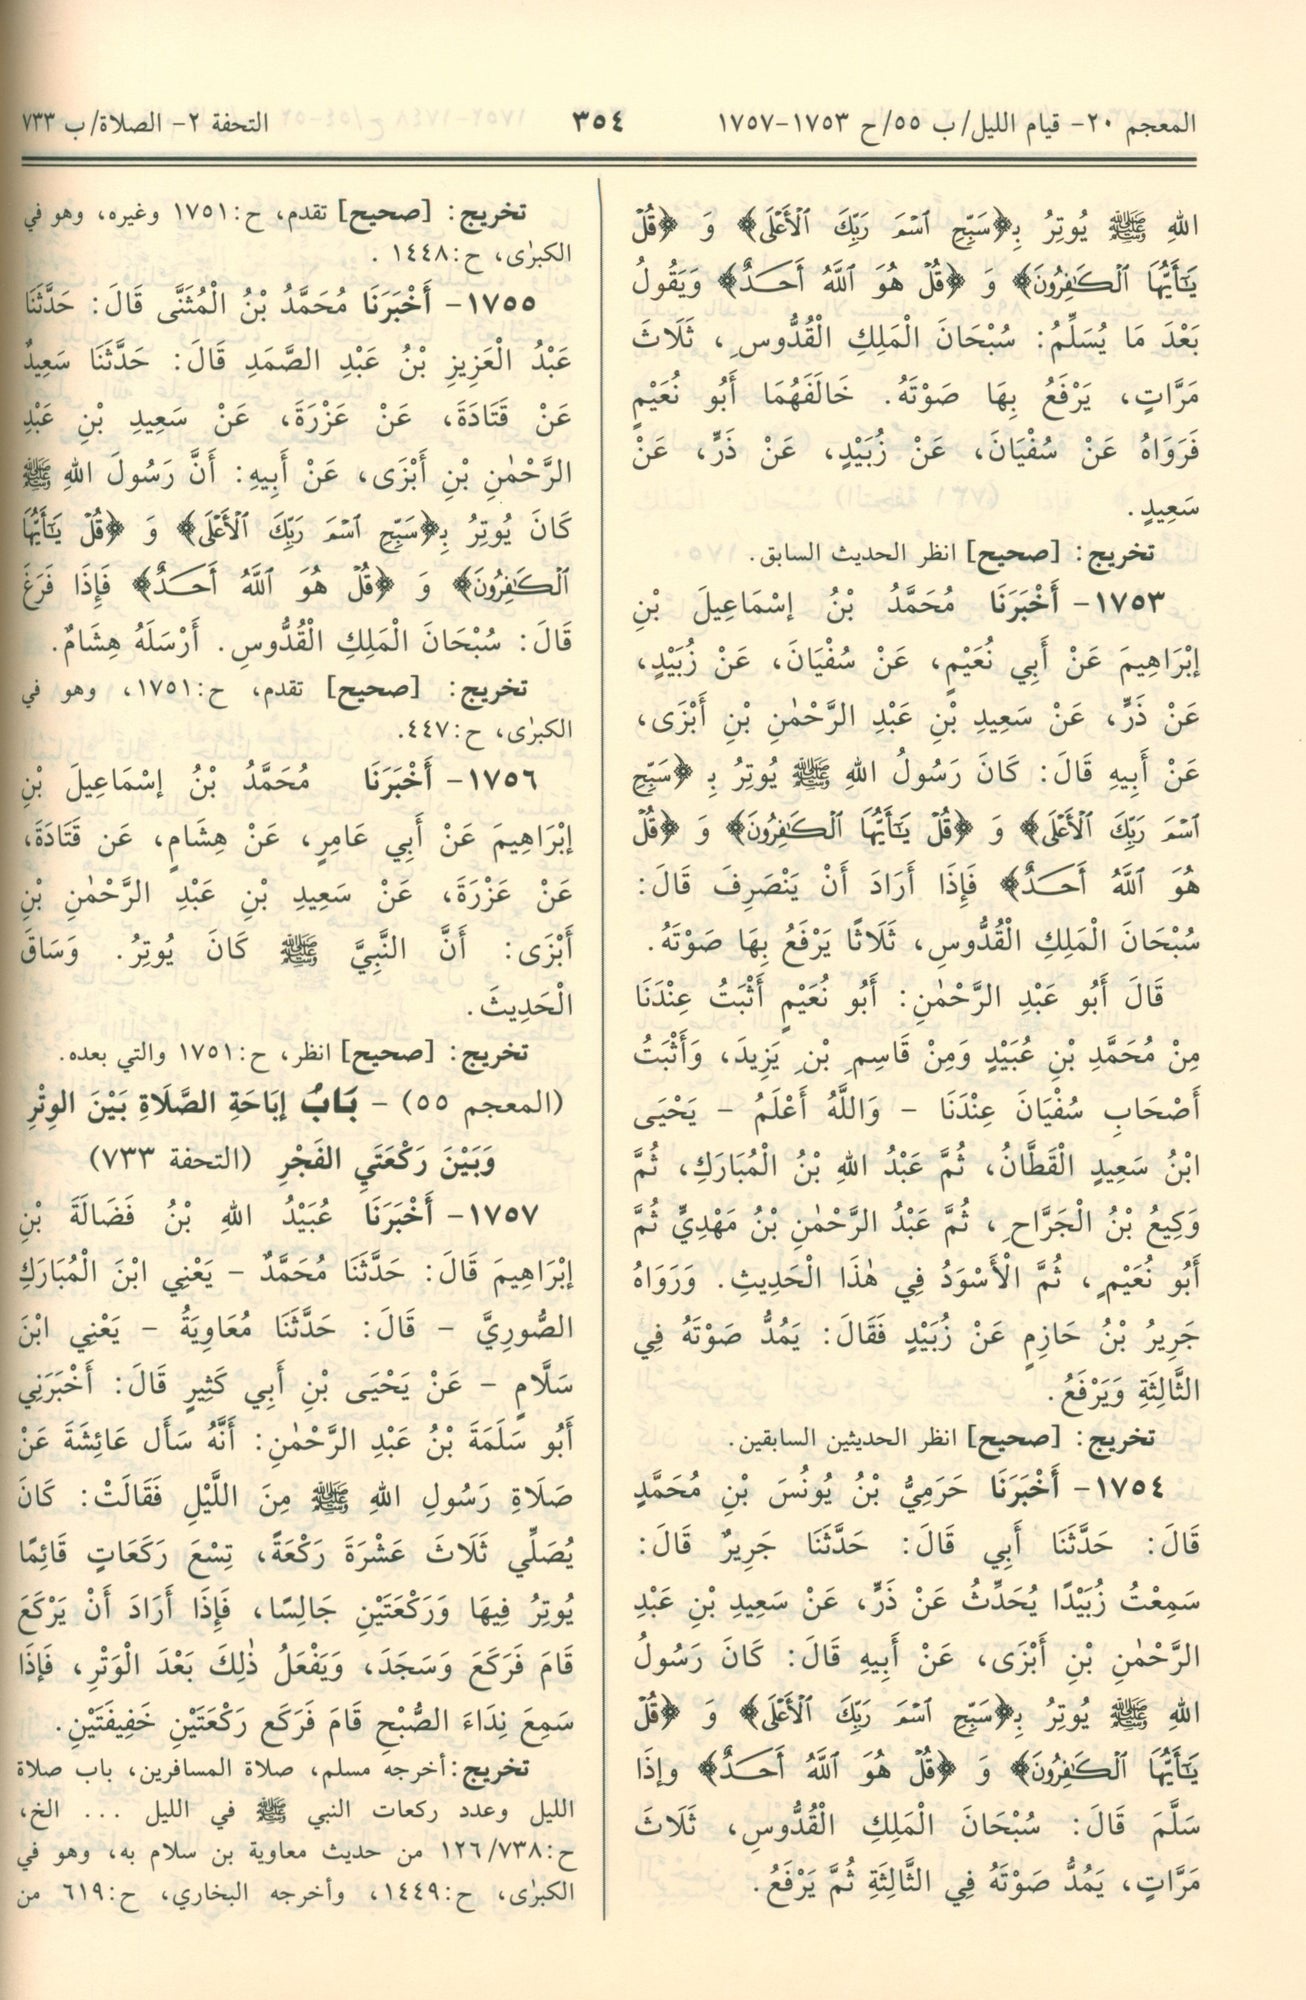 المعجم ٢٠- قيام الليل/ ب ٥٥/ ح ١٧٥٣-١٧٥٧
٣٥٤
التحفة ٢- الصلاة/ ب ٧٣٣
اللهِ ﷺ يُوتِرُ بِـ﴿سَبِّحِ ٱسْمَ رَبِّكَ ٱلْأَعْلَى﴾ وَ ﴿قُلْ
يَٰٓأَيُّهَا ٱلْكَٰفِرُونَ﴾ وَ ﴿قُلْ هُوَ ٱللَّهُ أَحَدٌ﴾ وَيَقُولُ
بَعْدَ مَا يُسَلِّمُ: سُبْحَانَ الْمَلِكِ الْقُدُّوسِ، ثَلَاثَ
مَرَّاتٍ، يَرْفَعُ بِهَا صَوْتَهُ. خَالَفَهُمَا أَبُو نُعَيْمٍ
فَرَوَاهُ عَنْ سُفْيَانَ، عَنْ زُبَيْدٍ، عَنْ ذَرٍّ، عَنْ
سَعِيدٍ.
تخريج: [صحيح] انظر الحديث السابق.
١٧٥٣- أَخْبَرَنَا مُحَمَّدُ بْنُ إِسْمَاعِيلَ بْنِ
إِبْرَاهِيمَ عَنْ أَبِي نُعَيْمٍ، عَنْ سُفْيَانَ، عَنْ زُبَيْدٍ،
عَنْ ذَرٍّ، عَنْ سَعِيدِ بْنِ عَبْدِ الرَّحْمٰنِ بْنِ أَبْزَى،
عَنْ أَبِيهِ قَالَ: كَانَ رَسُولُ اللهِ ﷺ يُوتِرُ بِـ ﴿سَبِّحِ
ٱسْمَ رَبِّكَ ٱلْأَعْلَى﴾ وَ ﴿قُلْ يَٰٓأَيُّهَا ٱلْكَٰفِرُونَ﴾ وَ ﴿قُلْ
هُوَ ٱللَّهُ أَحَدٌ﴾ فَإِذَا أَرَادَ أَنْ يَنْصَرِفَ قَالَ:
سُبْحَانَ الْمَلِكِ الْقُدُّوسِ، ثَلَاثًا يَرْفَعُ بِهَا صَوْتَهُ.
قَالَ أَبُو عَبْدِ الرَّحْمٰنِ: أَبُو نُعَيْمٍ أَثْبَتُ عِنْدَنَا
مِنْ مُحَمَّدِ بْنِ عُبَيْدٍ وَمِنْ قَاسِمِ بْنِ يَزِيدَ، وَأَثْبَتُ
أَصْحَابِ سُفْيَانَ عِنْدَنَا - وَاللَّهُ أَعْلَمُ - يَحْيَى
ابْنُ سَعِيدٍ الْقَطَّانُ، ثُمَّ عَبْدُ اللهِ بْنُ الْمُبَارَكِ، ثُمَّ
وَكِيعُ بْنُ الْجَرَّاحِ، ثُمَّ عَبْدُ الرَّحْمٰنِ بْنُ مَهْدِيٍّ ثُمَّ
أَبُو نُعَيْمٍ، ثُمَّ الْأَسْوَدُ فِي هٰذَا الْحَدِيثِ. وَرَوَاهُ
جَرِيرُ بْنُ حَازِمٍ عَنْ زُبَيْدٍ فَقَالَ: يَمُدُّ صَوْتَهُ فِي
الثَّالِثَةِ وَيَرْفَعُ.
تخريج: [صحيح] انظر الحديثين السابقين.
١٧٥٤- أَخْبَرَنَا حَرَمِيُّ بْنُ يُونُسَ بْنِ مُحَمَّدٍ
قَالَ: حَدَّثَنَا أَبِي قَالَ: حَدَّثَنَا جَرِيرٌ قَالَ:
سَمِعْتُ زُبَيْدًا يُحَدِّثُ عَنْ ذَرٍّ، عَنْ سَعِيدِ بْنِ عَبْدِ
الرَّحْمٰنِ بْنِ أَبْزَى، عَنْ أَبِيهِ قَالَ: كَانَ رَسُولُ
اللهِ ﷺ يُوتِرُ بِـ﴿سَبِّحِ ٱسْمَ رَبِّكَ ٱلْأَعْلَى﴾ وَ ﴿قُلْ
يَٰٓأَيُّهَا ٱلْكَٰفِرُونَ﴾ وَ ﴿قُلْ هُوَ ٱللَّهُ أَحَدٌ﴾ وإِذَا
سَلَّمَ قَالَ: سُبْحَانَ الْمَلِكِ الْقُدُّوسِ، ثَلَاثَ
مَرَّاتٍ، يَمُدُّ صَوْتَهُ فِي الثَّالِثَةِ ثُمَّ يَرْفَعُ.
تخريج: [صحيح] تقدم، ح:١٧٥١ وغيره، وهو في
الكبرٰى، ح:١٤٤٨ .
١٧٥٥- أَخْبَرَنَا مُحَمَّدُ بْنُ الْمُثَنَّى قَالَ: حَدَّثَنَا
عَبْدُ الْعَزِيزِ بْنُ عَبْدِ الصَّمَدِ قَالَ: حَدَّثَنَا سَعِيدٌ
عَنْ قَتَادَةَ، عَنْ عَزْرَةَ، عَنْ سَعِيدِ بْنِ عَبْدِ
الرَّحْمٰنِ بْنِ أَبْزَى، عَنْ أَبِيهِ: أَنَّ رَسُولَ اللهِ ﷺ
كَانَ يُوتِرُ بِـ﴿سَبِّحِ ٱسْمَ رَبِّكَ ٱلْأَعْلَى﴾ وَ ﴿قُلْ يَٰٓأَيُّهَا
ٱلْكَٰفِرُونَ﴾ وَ ﴿قُلْ هُوَ ٱللَّهُ أَحَدٌ﴾ فَإِذَا فَرَغَ
قَالَ: سُبْحَانَ الْمَلِكِ الْقُدُّوسِ. أَرْسَلَهُ هِشَامٌ.
تخريج: [صحيح] تقدم، ح:١٧٥١، وهو في
الكبرٰى، ح:٤٤٧.
١٧٥٦- أَخْبَرَنَا مُحَمَّدُ بْنُ إِسْمَاعِيلَ بْنِ
إِبْرَاهِيمَ عَنْ أَبِي عَامِرٍ، عَنْ هِشَامٍ، عَن قَتَادَةَ،
عَنْ عَزْرَةَ، عَنْ سَعِيدِ بْنِ عَبْدِ الرَّحْمٰنِ بْنِ
أَبْزَى: أَنَّ النَّبِيَّ ﷺ كَانَ يُوتِرُ. وَسَاقَ
الْحَدِيثَ.
تخريج: [صحيح] انظر، ح:١٧٥١ والتي بعده.
(المعجم ٥٥) - بَابُ إِبَاحَةِ الصَّلَاةِ بَيْنَ الوِتْرِ
وَبَيْنَ رَكْعَتَيِ الفَجْرِ (التحفة ٧٣٣)
١٧٥٧- أَخْبَرَنَا عُبَيْدُ اللهِ بْنُ فَضَالَةَ بْنِ
إِبْرَاهِيمَ قَالَ: حَدَّثَنَا مُحَمَّدٌ - يَعْنِي ابْنَ الْمُبَارَكِ
الصُّورِيَّ - قَالَ: حَدَّثَنَا مُعَاوِيَةُ - يَعْنِي ابْنَ
سَلَّامٍ - عَنْ يَحْيَى بْنِ أَبِي كَثِيرٍ قَالَ: أَخْبَرَنِي
أَبُو سَلَمَةَ بْنُ عَبْدِ الرَّحْمٰنِ: أَنَّهُ سَأَل عَائِشَةَ عَنْ
صَلَاةِ رَسُولِ اللهِ ﷺ مِنَ اللَّيْلِ فَقَالَتْ: كَانَ
يُصَلِّي ثَلَاثَ عَشْرَةَ رَكْعَةً، تِسْعَ رَكَعَاتٍ قَائِمًا
يُوتِرُ فِيهَا وَرَكْعَتَيْنِ جَالِسًا، فَإِذَا أَرَادَ أَنْ يَرْكَعَ
قَامَ فَرَكَعَ وَسَجَدَ، وَيَفْعَلُ ذٰلِكَ بَعْدَ الْوَتْرِ، فَإِذَا
سَمِعَ نِدَاءَ الصُّبْحِ قَامَ فَرَكَع رَكْعَتَيْنِ خَفِيفَتَيْنِ.
تخريج: أخرجه مسلم، صلاة المسافرين، باب صلاة
الليل وعدد ركعات النبي ﷺ في الليل ... الخ،
ح:١٢٦/٧٣٨ من حديث معاوية بن سلام به، وهو في
الكبرٰى، ح:١٤٤٩، وأخرجه البخاري، ح:٦١٩ من